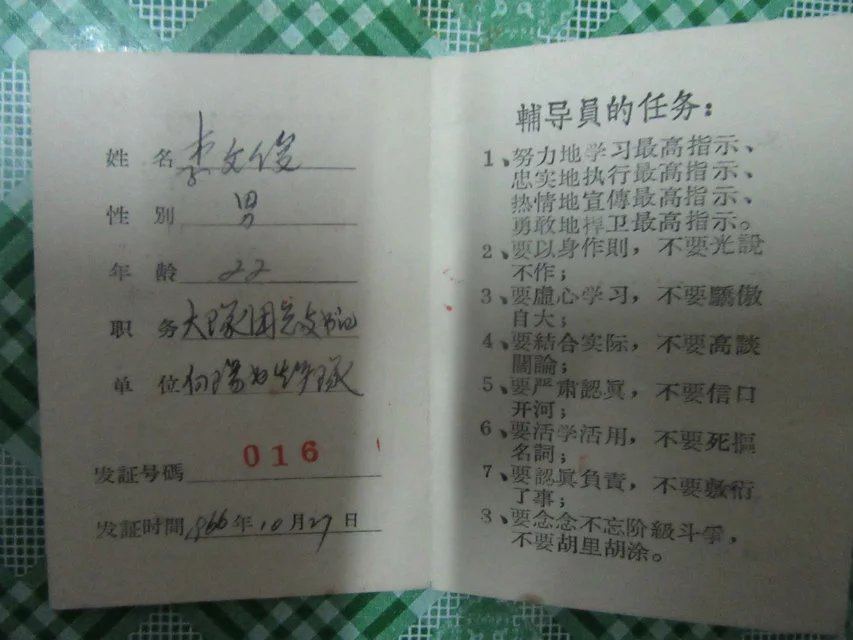 姓名 李文俊
性別 男
年齢 22
职务 大队团总支书记
单位 向阳生产队
发证号碼 016
发证时間 1966年10月27日
輔导員的任务：
1、努力地学习最高指示、
忠实地执行最高指示、
热情地宣傳最高指示、
勇敢地捍卫最高指示。
2、要以身作則，不要光說
不作；
3、要虛心学习，不要驕傲
自大；
4、要結合实际，不要高談
闊論；
5、要严肃認眞，不要信口
开河；
6、要活学活用，不要死摳
名詞；
7、要認眞負責，不要敷衍
了事；
8、要念念不忘阶級斗爭，
不要胡里胡涂。